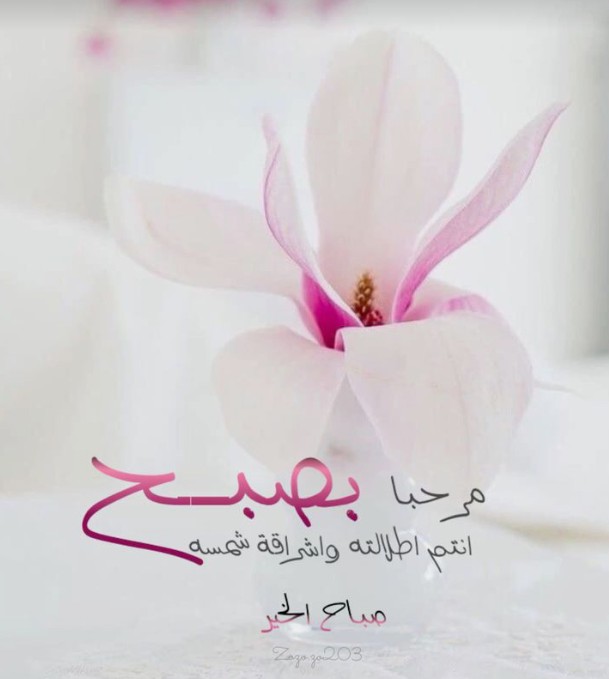 مرحبا بصبح
انتم اطلالته واشراقة شمسه
صباح الخير
Zozo.zo203